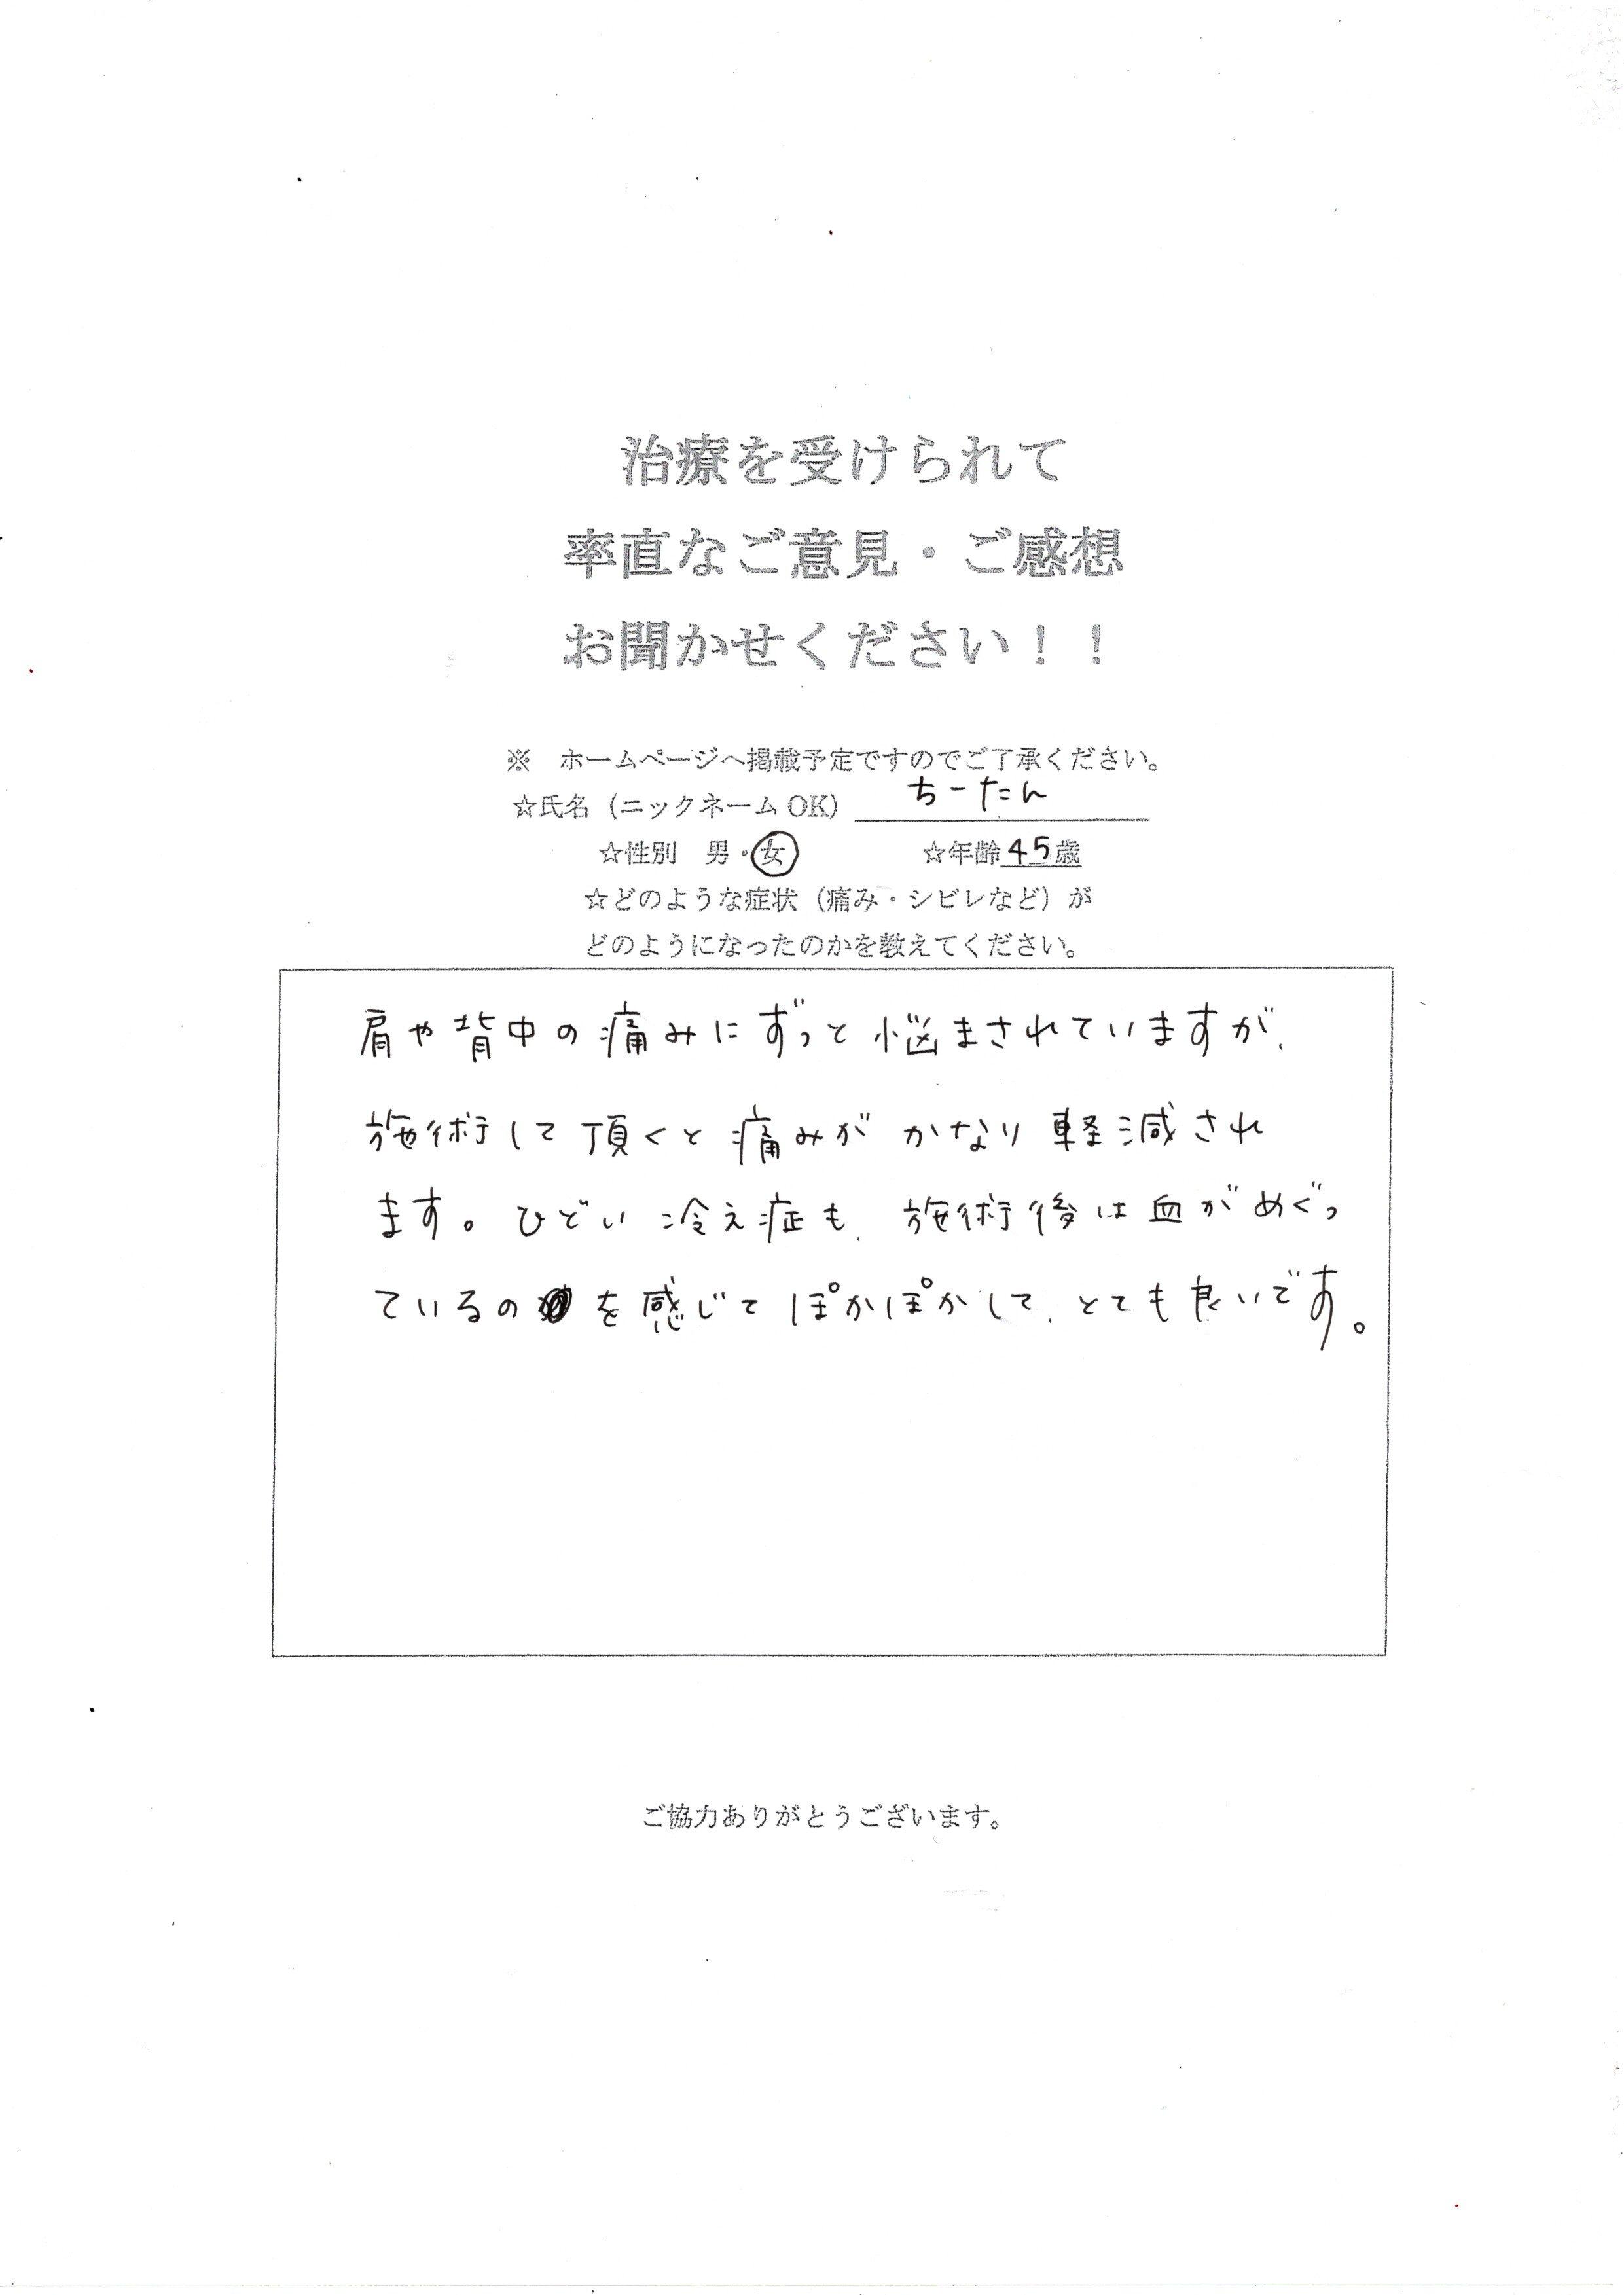 治療を受けられて
率直なご意見・ご感想
お聞かせください！！
※　ホームページへ掲載予定ですのでご了承ください。
☆氏名（ニックネームOK）ちーたん
☆性別　男・女　☆年齢45歳
☆どのような症状（痛み・シビレなど）が
どのようになったのかを教えてください。
肩や背中の痛みにずっと悩まされていますが、
施術して頂くと痛みがかなり軽減され
ます。ひどい冷え症も、施術後は血がめぐっ
ているのを感じてぽかぽかして、とても良いです。
ご協力ありがとうございます。